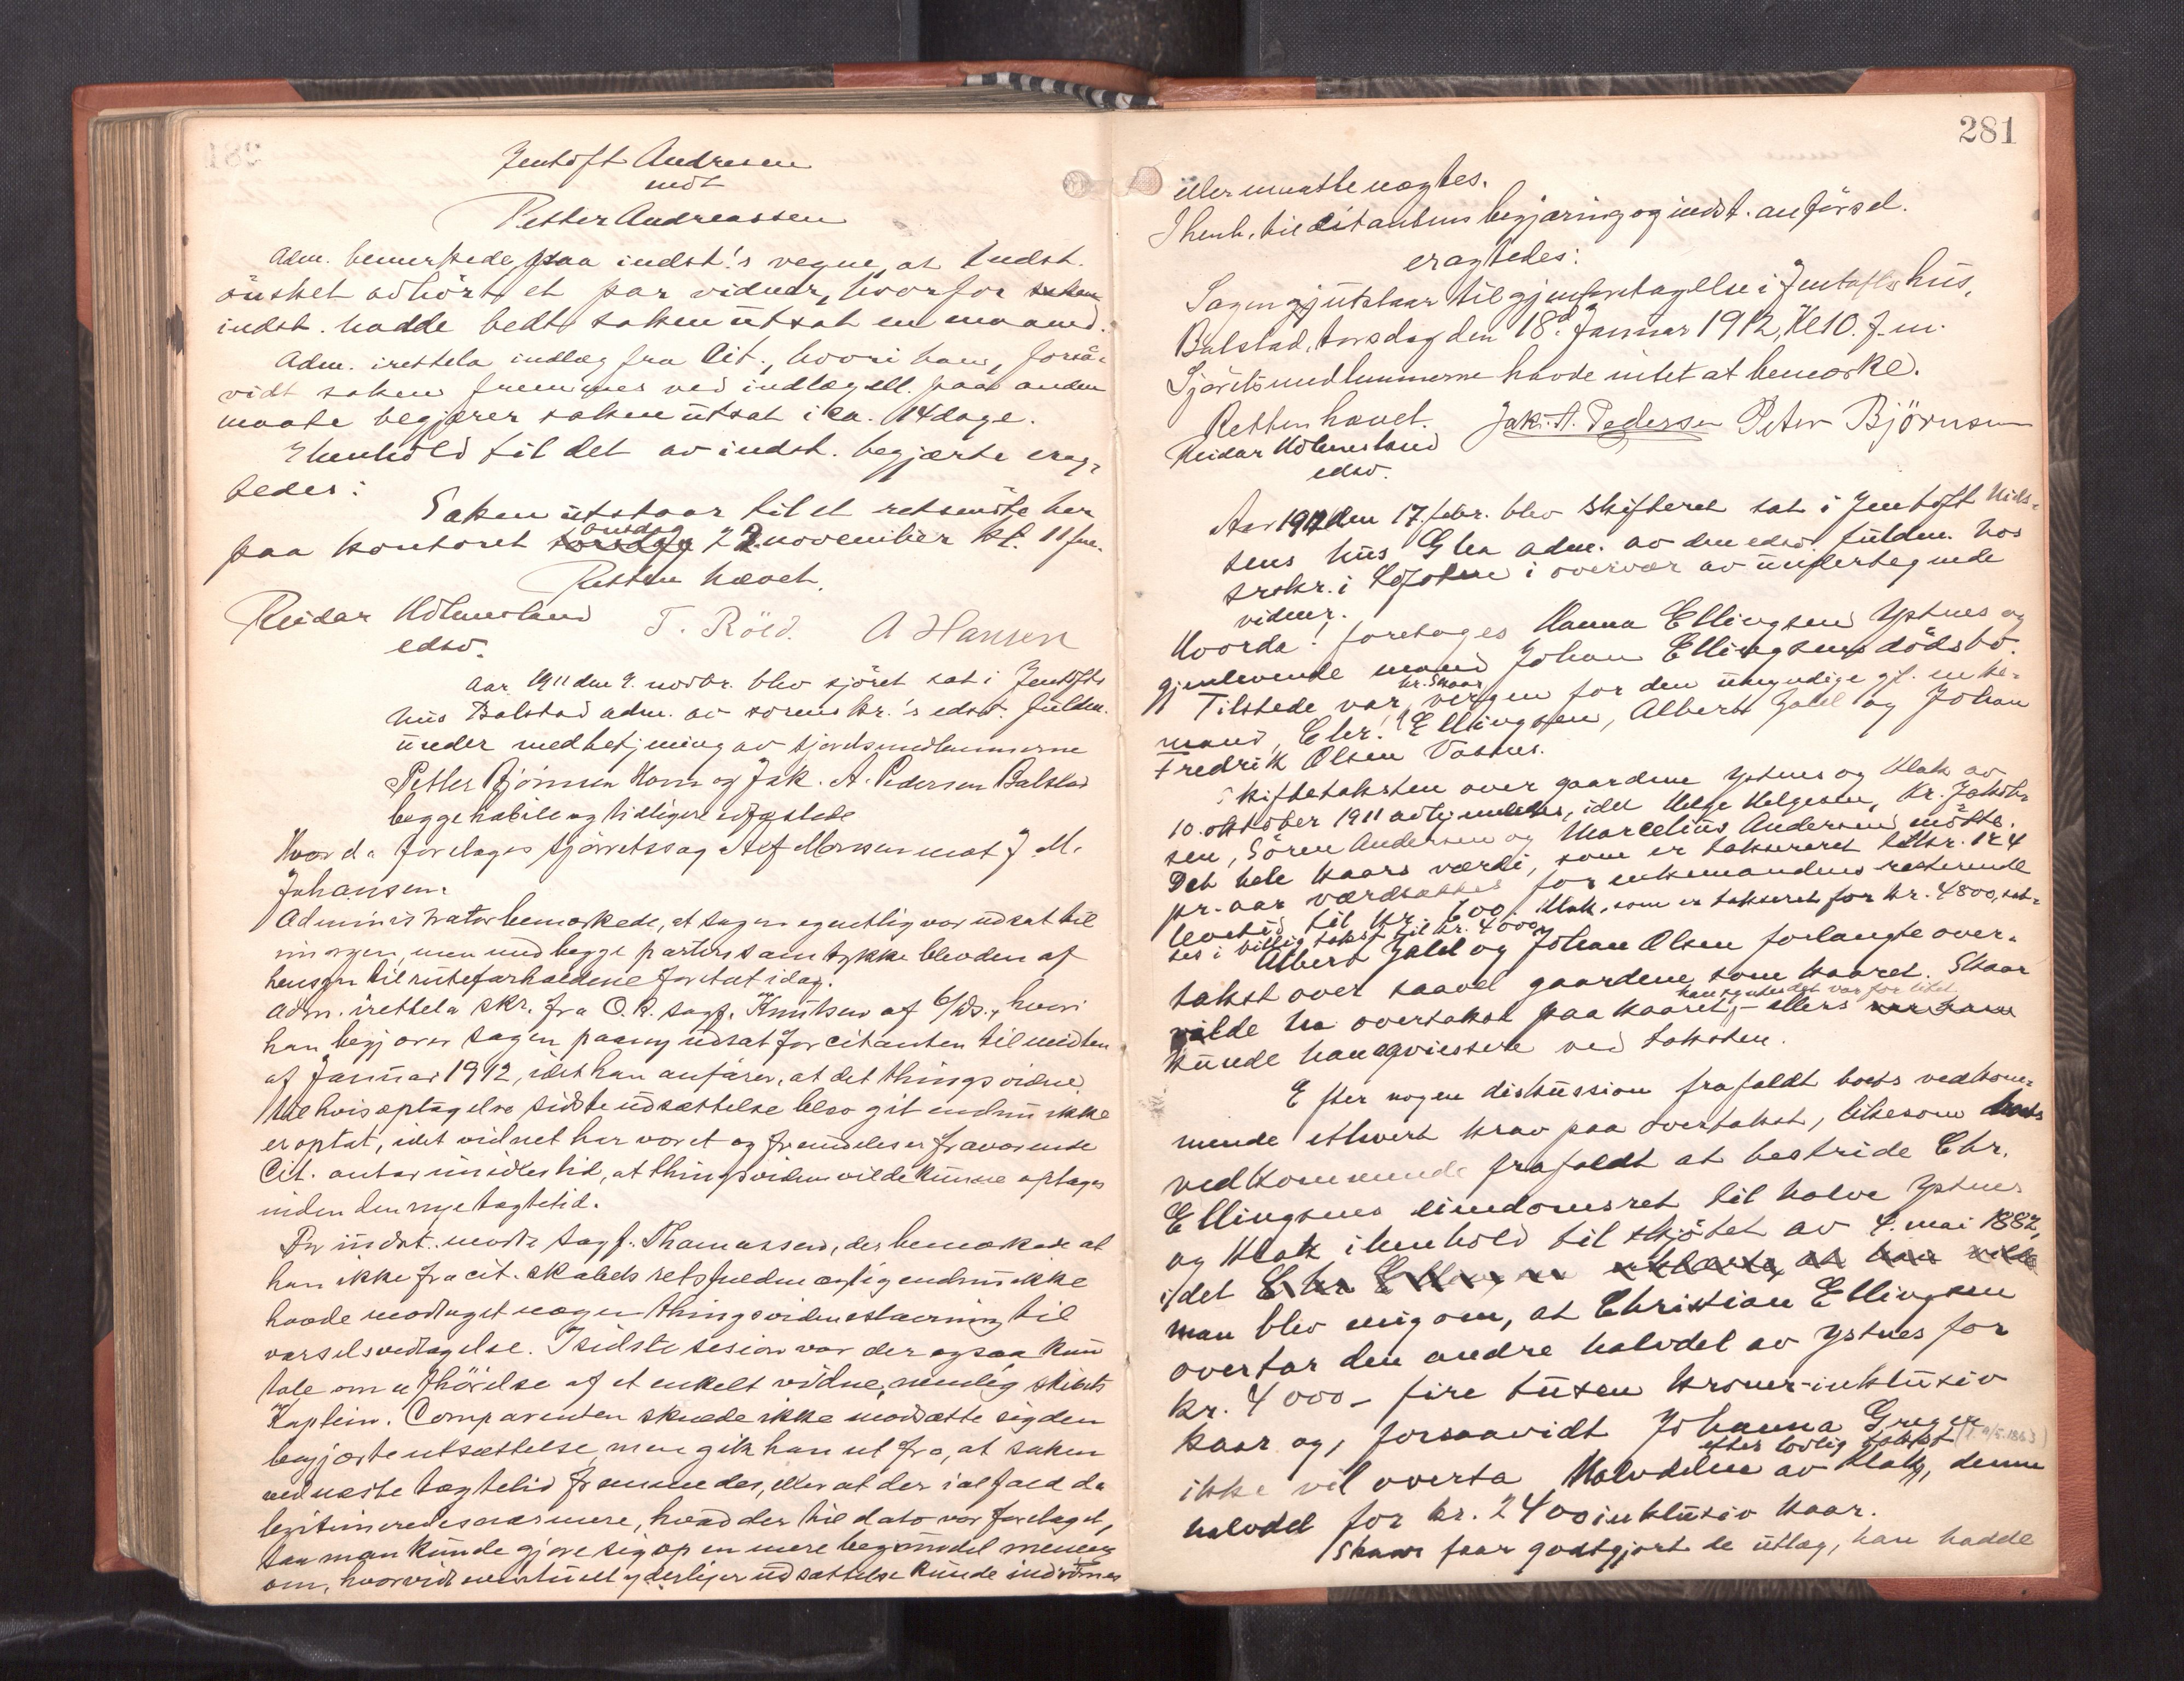 Jentoft Andresen
mot
Petter Andreassen
Adm. bemerkede paa indst.'s vegne, at indst.
ønsket avhørt et par vidner, hvorfor saken
indst. hadde bedt saken utsat en maaned.
Adm. irettela indlæg fra Cit., hvori han, forsaa-
vidt saken fremmes ved indlæg ell. paa anden
maate begjærer saken utsat i ca. 14 dage.
I henhold til det av indst. begjærte erag-
tedes:
Saken utstaar til et retsmøte her
onsdag
paa kontoret torsdag 22 november kl. 11 fm.
Retten hævet.
Reidar Holmesland T. Röed. A Hansen
edsv.
Aar 1911 den 9. novbr. blev sjöret sat i Jentofts
hus Balstad adm. av sorenskr.'s edsv. fuldm.
under medbetjening av sjøretsmedlemmerne
Petter Björnsen Horn og Jak. A. Pedersen Balstad
begge habile og tidligere edfæstede
Hvor da foretages sjøretssag Alf Monsen mot J. M.
Johansen.
Administrator bemærkede, at sagen egentlig var udsat til
imorgen, men med begge parters samtykke blev den af
hensyn til ruteforholdene foretat idag.
Adm. irettela skr. fra O.R. sagf. Knutsen af 6/ds., hvori
han begjærer sagen paany udsat for citanten til midten
af Januar 1912, idet han anfører, at det thingsvidne
til hvis optagelse sidste udsættelse blev git endnu ikke
er optat, idet vidnet har været og fremdeles er fraværende
Cit. antar imidlertid, at thingsvidnet vilde kunne optages
inden den nye tægtetid.
For indst. mødte sagf. Thomassen, der bemærkede at
han ikke fra cit. skabets retsfuldmægtig endnu ikke
havde modtaget nogen thingsvidnestævning til
varselsvedtagelse. I sidste sesion var der ogsaa kun
tale om afhörelse af et enkelt vidne, nemlig skibets
Kaptein. Comparenten skulde ikke modsætte sig den
begjærte utsættelse, men gik han ut fra, at saken
ved næste tægtetid fremmedes, eller at der ialfald da
legitimeredes nærmere, hvad der til dato var foretaget,
saa man kunde gjøre sig op en mere begrundet mening
om, hvorvidt eventuelt yderligere udsættelse kunde indrømmes
281
eller maatte nægtes.
I henh. til citantens begjæring og indst. anførsel.
eragtedes:
Sagen utstaar til gjenforetagelse i Jentofts hus,
Balstad, torsdag den 18de Januar 1912, Kl 10. f.m.
Sjøretsmedlemmerne havde intet at bemærke.
Retten hævet. Jak. A. Pedersen Peter Björnsen
Reidar Holmesland
edsv.
Aar 1912 den 17. febr. blev skifteret sat i Jentoft Nils-
sens hus adm. av den edsv. fuldm. hos
srskr. i Lofoten i overvær av undertegnede
vidner.
Hvorda: foretages Hanna Ellingsen Ystnes og
gjenlevende mand Johan Ellingsens dödsbo.
Tilstede var hr. Skaar, vergen for den umyndige gf. enke-
mand, Chr. Ellingsen, Albert Jakl og Johan
Fredrik Olsen Vastnes.
Skiftetaksten over gaardene Ystnes og Hlak av
10. oktober 1911 avhjemledes, idet Helge Helgesen, Kr. Jakob-
sen, Sören Andersen og Marcelius Andersen mötte.
Det hele kaars værdi, som er taksereret til kr. 124
pr. aar værdsættes for enkemandens resterende
levetid til kr. 600. Hlak, som er takseret for kr. 4800, sæt-
tes i villig takst til kr. 4000,
Albert Jakl og Johan Olsen forlangte over-
takst over saavel gaardene som kaaret. Skaar
vilde ha overtakst paa kaaret, han syntes det var for litet - ellers
kunde han aqviescere ved taksten.
Efter nogen diskussion frafaldt boets vedkom-
mende ethvert krav paa overtakst, likesom boets
vedkommende frafaldt at bestride Chr.
Ellingsens eiendomsret til halve Ystnes
og Hlak ihenhold til skjötet av 4. mai 1882,
idet Chr Ellingsen erklærte, at han vilde
man blev enig om, at Christian Ellingsen
overtar den andre halvdel av Ystnes for
kr. 4000 - fire tusen kroner - inklusiv
kaar og, forsaavidt Johanna Greger (f. 9/5. 1863)
efter lovlig takst
ikke vil overta Halvdelen av Hlak, denne
halvdel for kr. 2400 inklusiv kaar.
Skaar faar godtgjort de utlæg, han hadde